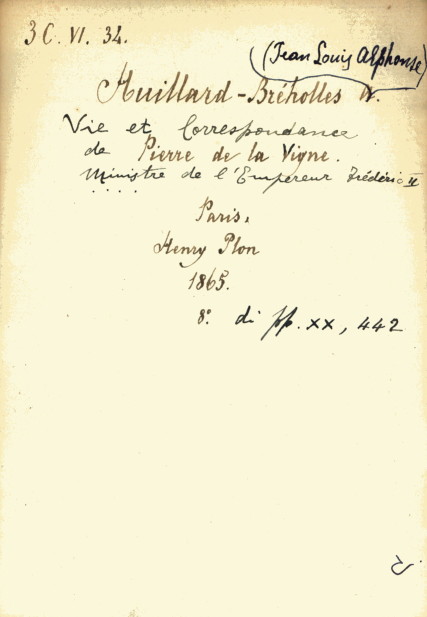 3 C. VI. 34.
(Jean Louis Alphonse)
Huillard-Bréholles A.
Vie et Correspondance
de Pierre de la Vigne.
Ministre de l'Empereur Frédéric II
. . . . .
Paris,
Henry Plon
1865.
8° di pp. xx, 442